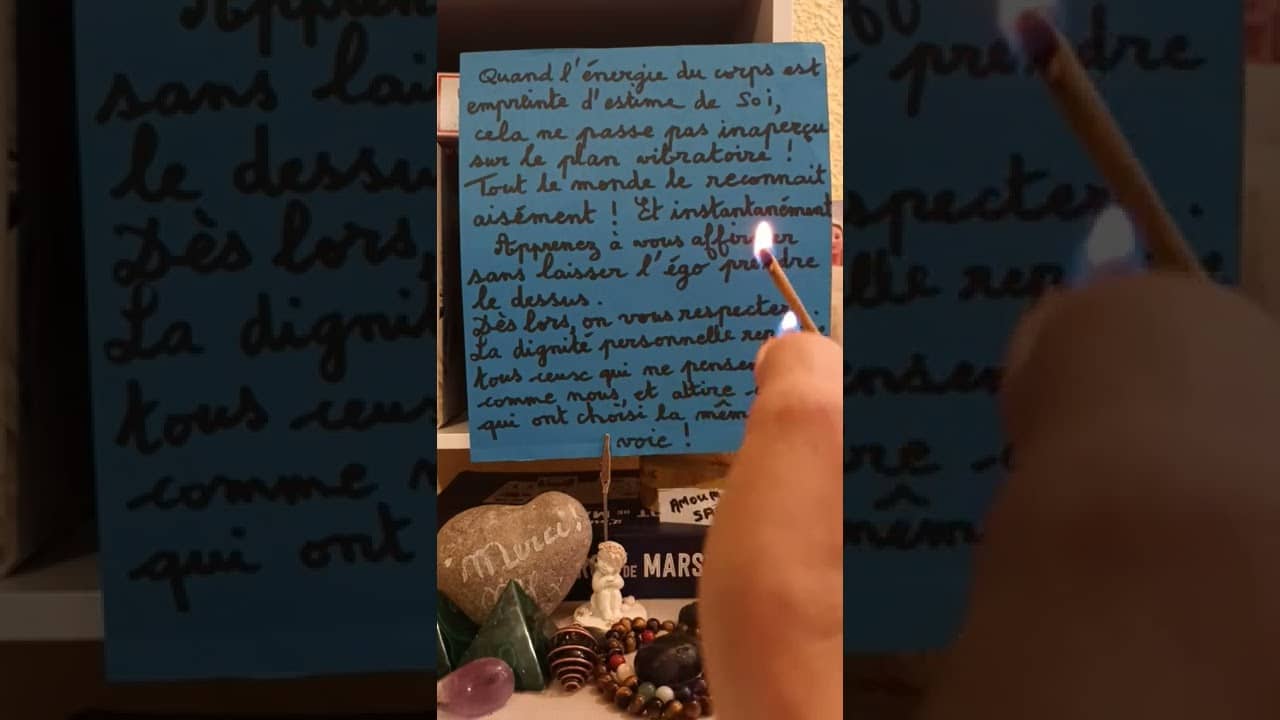 Quand l'énergie du corps est
empreinte d'estime de Soi,
cela ne passe pas inaperçu
sur le plan vibratoire !
Tout le monde le reconnait
aisément ! Et instantanément
Apprenez à vous
sans laisser l'égo prendre
le dessus.
Dès lors, on vous respecte
La dignité personnelle
tous ceux qui ne
comme nous, et attire
qui ont choisi la
voie !
Merci!
DE MARS